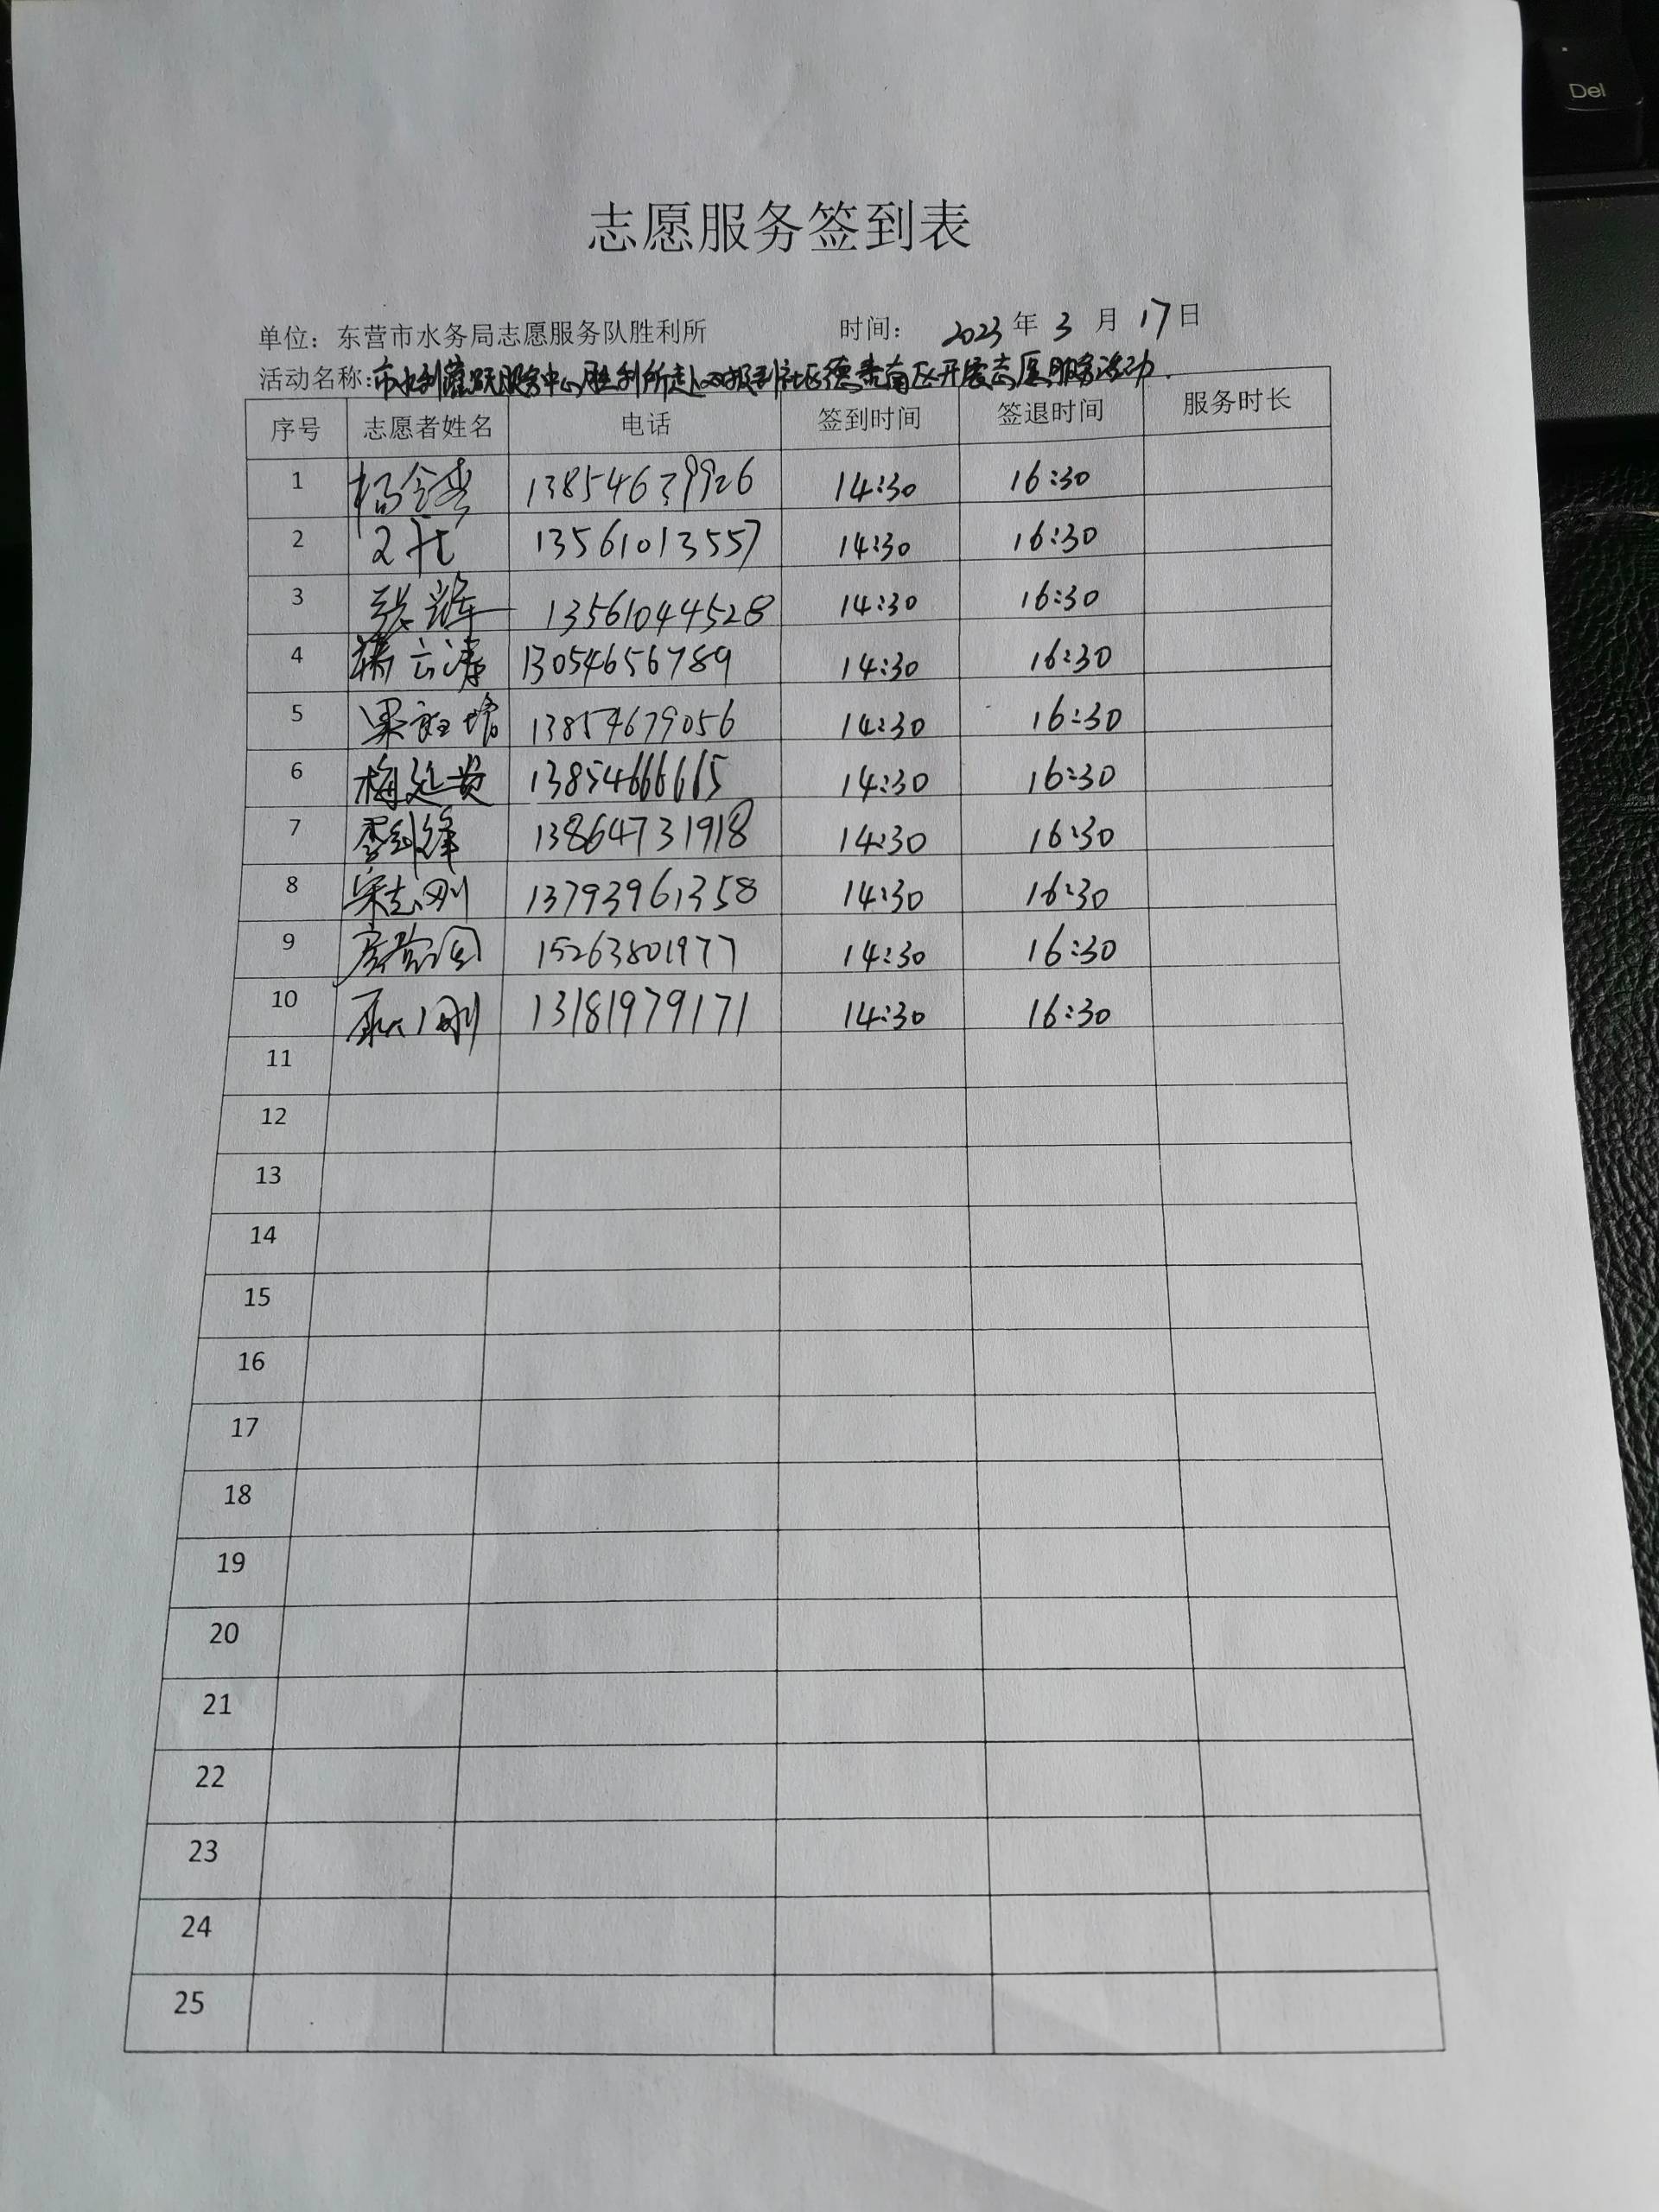 Del
志愿服务签到表
单位：东营市水务局志愿服务队胜利所 时间： 2023 年 3 月 17 日
活动名称：市水利灌溉服务中心胜利所赴双报到社区德泰南区开展志愿服务活动.
序号 志愿者姓名 电话 签到时间 签退时间 服务时长
1 13854639926 14:30 16:30
2 13561013557 14:30 16:30
3 张辉 13561044528 14:30 16:30
4 云涛 13054656789 14:30 16:30
5 13854679056 14:30 16:30
6 梅延贵 13854666665 14:30 16:30
7 李剑锋 13864731918 14:30 16:30
8 宋志刚 13793961358 14:30 16:30
9 15263801977 14:30 16:30
10 13181979171 14:30 16:30
11
12
13
14
15
16
17
18
19
20
21
22
23
24
25